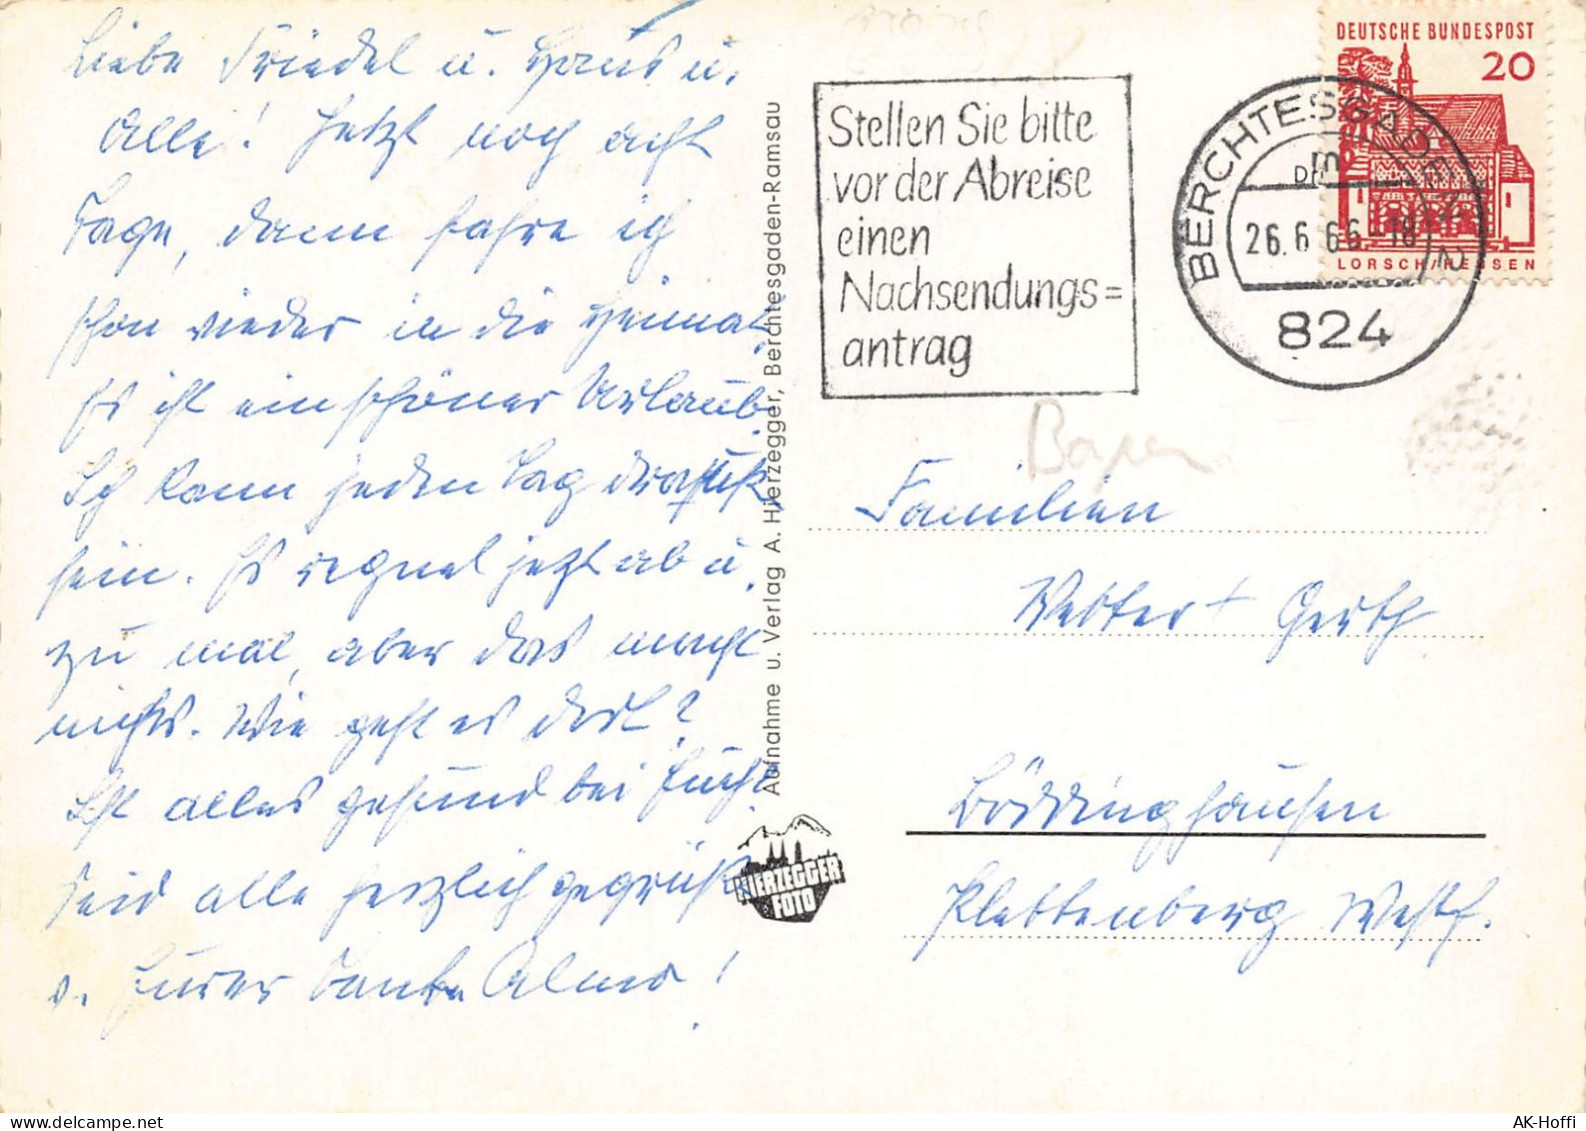 Liebe Friedel u. Hans u.
Alle! Jetzt noch acht
Tage, dann fahre ich
schon wieder in die Heimat.
Es ist ein schöner Urlaub.
Ich kann jeden Tag draußen
sein. Es regnet jetzt ab u.
zu mal, aber das macht
nichts. Wie geht es dort?
Ist alles gesund bei Euch?
Seid alle herzlich gegrüßt
v. Eurer Tante Alma!
Aufnahme u. Verlag A. Hierzegger, Berchtesgaden-Ramsau
HIERZEGGER
FOTO
Stellen Sie bitte
vor der Abreise
einen
Nachsendungs=
antrag
BERCHTESGADEN 2
26.6.66-18
824
DEUTSCHE BUNDESPOST
20
LORSCH/HESSEN
Bayern
Familien
Vetter + Gerth
Böddinghausen
Plettenberg Westf.
AK-Hoffi